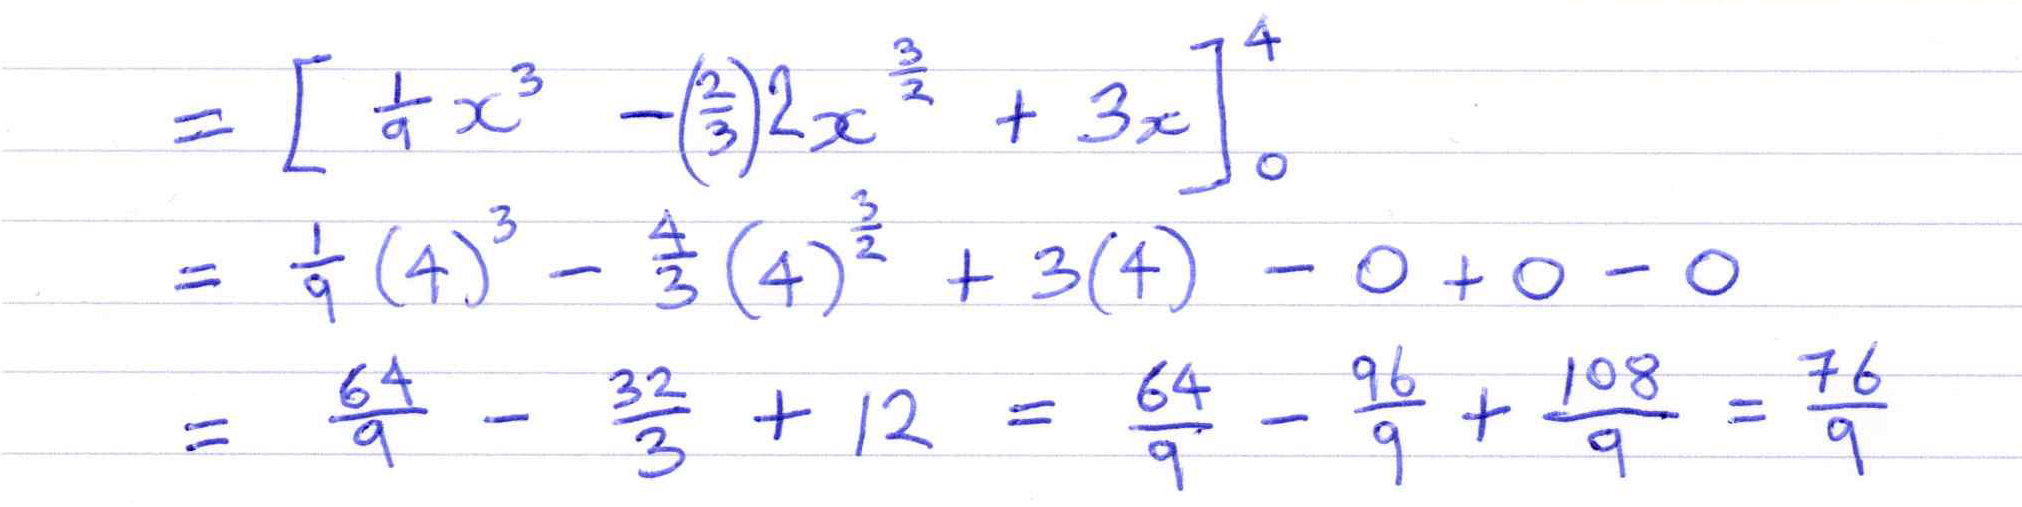 = [ 1/9 x^3 - (2/3) 2x^(3/2) + 3x ]_0^4
= 1/9 (4)^3 - 4/3 (4)^(3/2) + 3(4) - 0 + 0 - 0
= 64/9 - 32/3 + 12 = 64/9 - 96/9 + 108/9 = 76/9